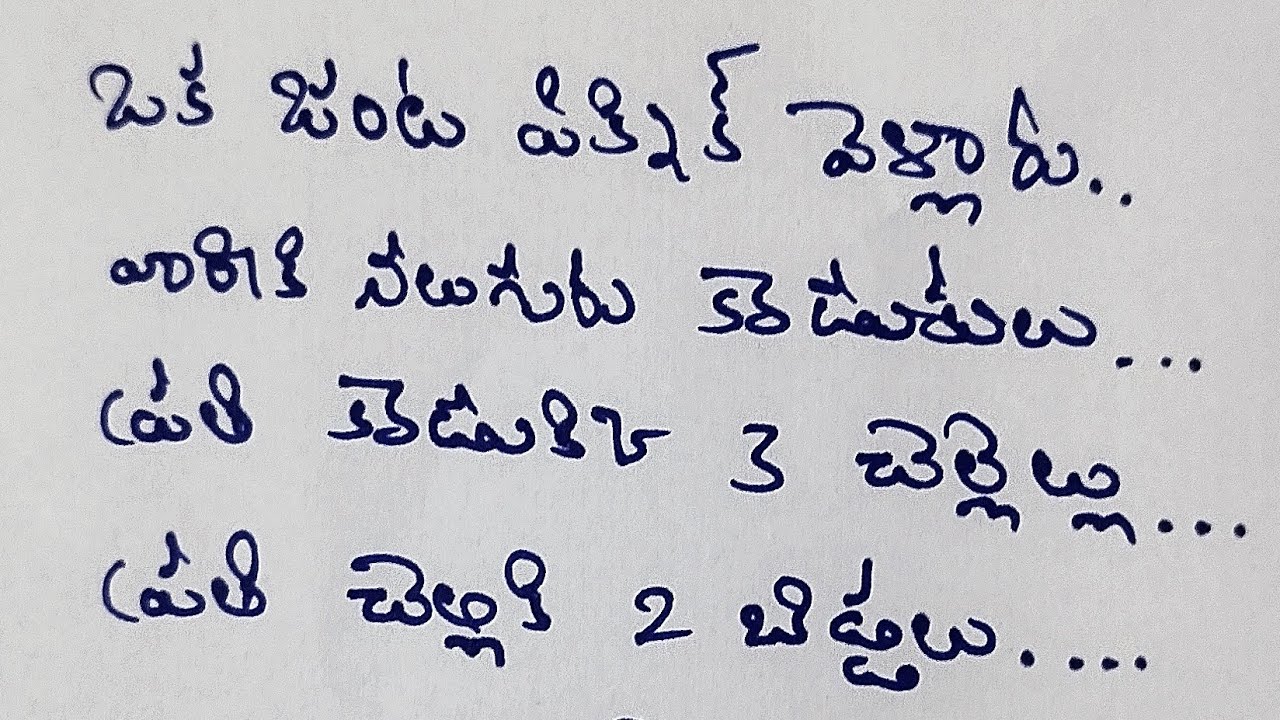 ఒక జంట పిక్నిక్ వెళ్లారు..
వారికి నలుగురు కొడుకులు...
ప్రతి కొడుకుకి 3 చెల్లెల్లు...
ప్రతి చెల్లికి 2 బిడ్డలు....